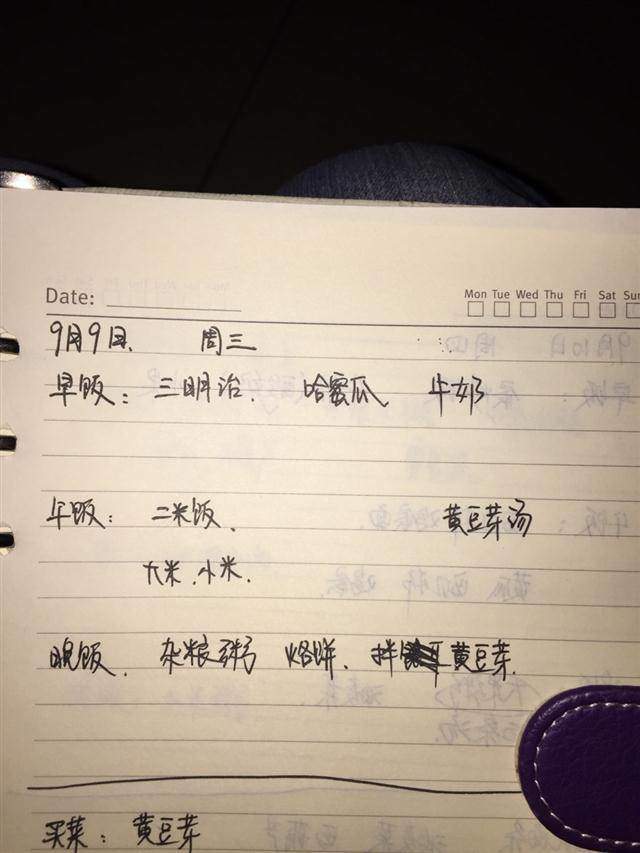 Date:
Mon Tue Wed Thu Fri Sat Sun
9月9日. 周三
早饭：三明治. 哈密瓜 牛奶
午饭：二米饭. 黄豆芽汤
大米.小米.
晚饭. 杂粮粥 烙饼. 拌黄豆芽.
买菜：黄豆芽